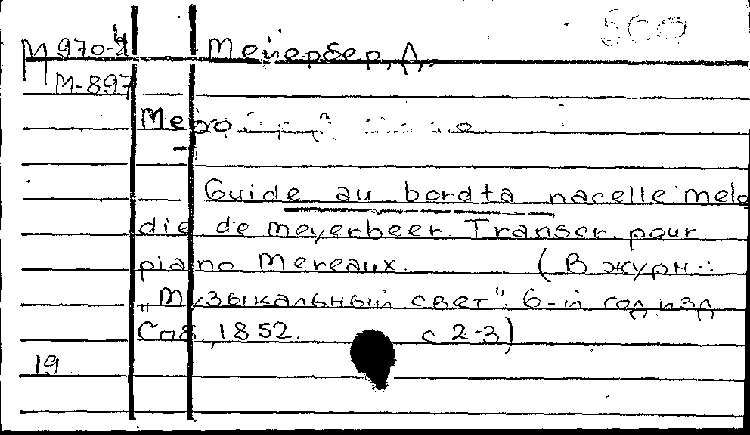 500
М 970-4 Мейербер, Д.
М-897
Guide au bord ta nacelle melo
die de meyerbeer. Transcr. pour
piano Mereaux. (В журн.:
„Музыкальный свет". 6-й год изд
Спб, 1852. с 2-3)
19